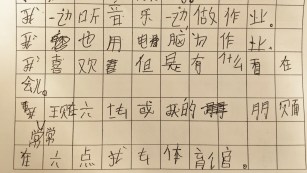 我一边听音乐一边做作业。
我也用电脑为作业。
我喜欢看但是有什么看在
会儿。
现在六去或我的朋
常常
在六点我去体育馆。